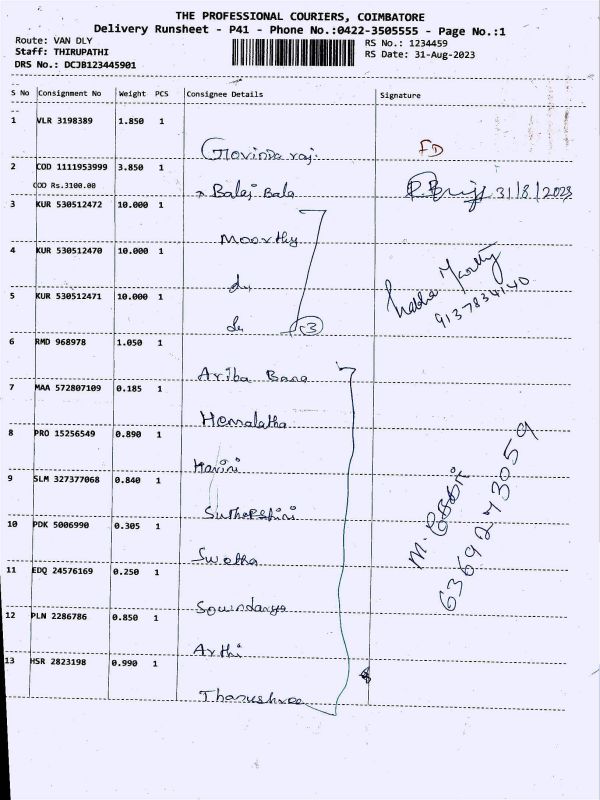 THE PROFESSIONAL COURIERS, COIMBATORE
Delivery Runsheet - P41 - Phone No.:0422-3505555 - Page No.:1
Route: VAN DLY
RS No.: 1234459
Staff: THIRUPATHI
RS Date: 31-Aug-2023
DRS No.: DCJB123445901
S No Consignment No Weight PCS Consignee Details Signature
1 VLR 3198389 1.850 1
Govinda raj. FD
2 COD 1111953999 3.850 1
COD Rs.3100.00
Balaj Bala 31/8/2023
3 KUR 530512472 10.000 1
Moorthy
4 KUR 530512470 10.000 1
do
5 KUR 530512471 10.000 1
do 3
9137834140
6 RMD 968978 1.050 1
Ariba Bana
7 MAA 572807109 0.185 1
Hemalatha
8 PRO 15256549 0.890 1
Harini
9 SLM 327377068 0.840 1
10 PDK 5006990 0.305 1
Swetha
M.
6369243059
11 EDQ 24576169 0.250 1
Soundarya
12 PLN 2286786 0.850 1
Arthi
13 HSR 2823198 0.990 1
Tharushree